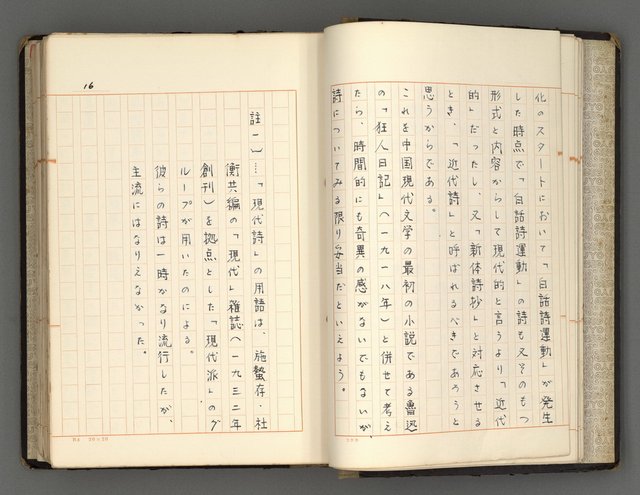 化のスタートにおいて「白話詩運動」が発生
した時点で「白話詩運動」の詩も又そのもつ
形式と内容からして現代的と言うより「近代
的」だったし、又「新体詩抄」と対応させる
とき、「近代詩」と呼ばれるべきであろうと
思うからである。
これを中国現代文学の最初の小説である魯迅
の「狂人日記」(一九一八年)と併せて考え
たら、時間的にも奇異の感がないでもないが、
詩についてみる限り妥当だといえよう。
16
註一)…「現代詩」の用語は、施蟄存・杜
衡共編の「現代」雑誌(一九三二年
創刊)を拠点とした「現代派」のグ
ループが用いたのによる。
彼らの詩は一時かなり流行したが、
主流にはなりえなかった。
B4 20×20